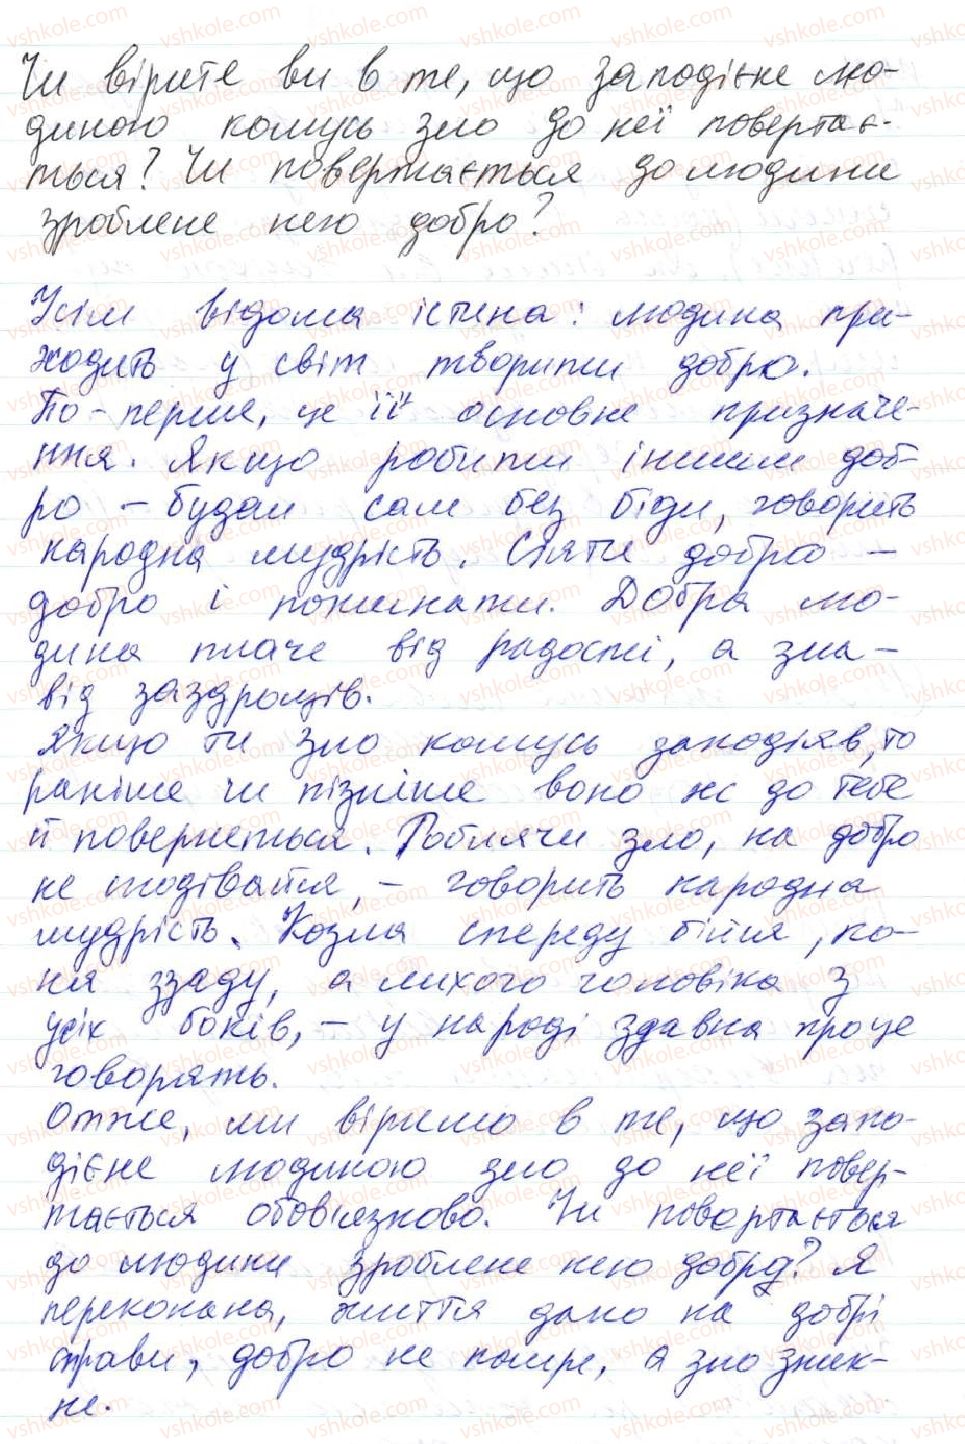 Чи вірите ви в те, що заподієне лю-
диною комусь зло до неї повертає-
ться? Чи повертається до людини
зроблене нею добро?
Усім відома істина: людина при-
ходить у світ творити добро.
По-перше, це її основне призначе-
ння. Якщо робити іншим доб-
ро – будеш сам без біди, говорить
народна мудрість. Сіяти добро –
добро і пожинати. Добра лю-
дина плаче від радості, а зла –
від заздрощів.
Якщо ти зло комусь заподіяв, то
раніше чи пізніше воно ж до тебе
й повернеться. Роблячи зло, на добро
не сподівайся, – говорить народна
мудрість. Козла спереду бійся, ко-
ня ззаду, а лихого чоловіка з
усіх боків, – у народі здавна про це
говорять.
Отже, ми віримо в те, що запо-
дієне людиною зло до неї повер-
тається обов'язково. Чи повертається
до людини зроблене нею добро? Я
переконана, життя дано на добрі
справи, добро не помре, а зло зник-
не.